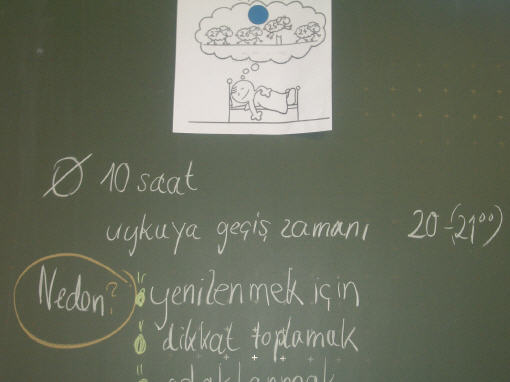 Ø 10 saat
uykuya geçiş zamanı 20-(21⁰⁰)
Neden?
yenilenmek için
dikkat toplamak
odaklanmak